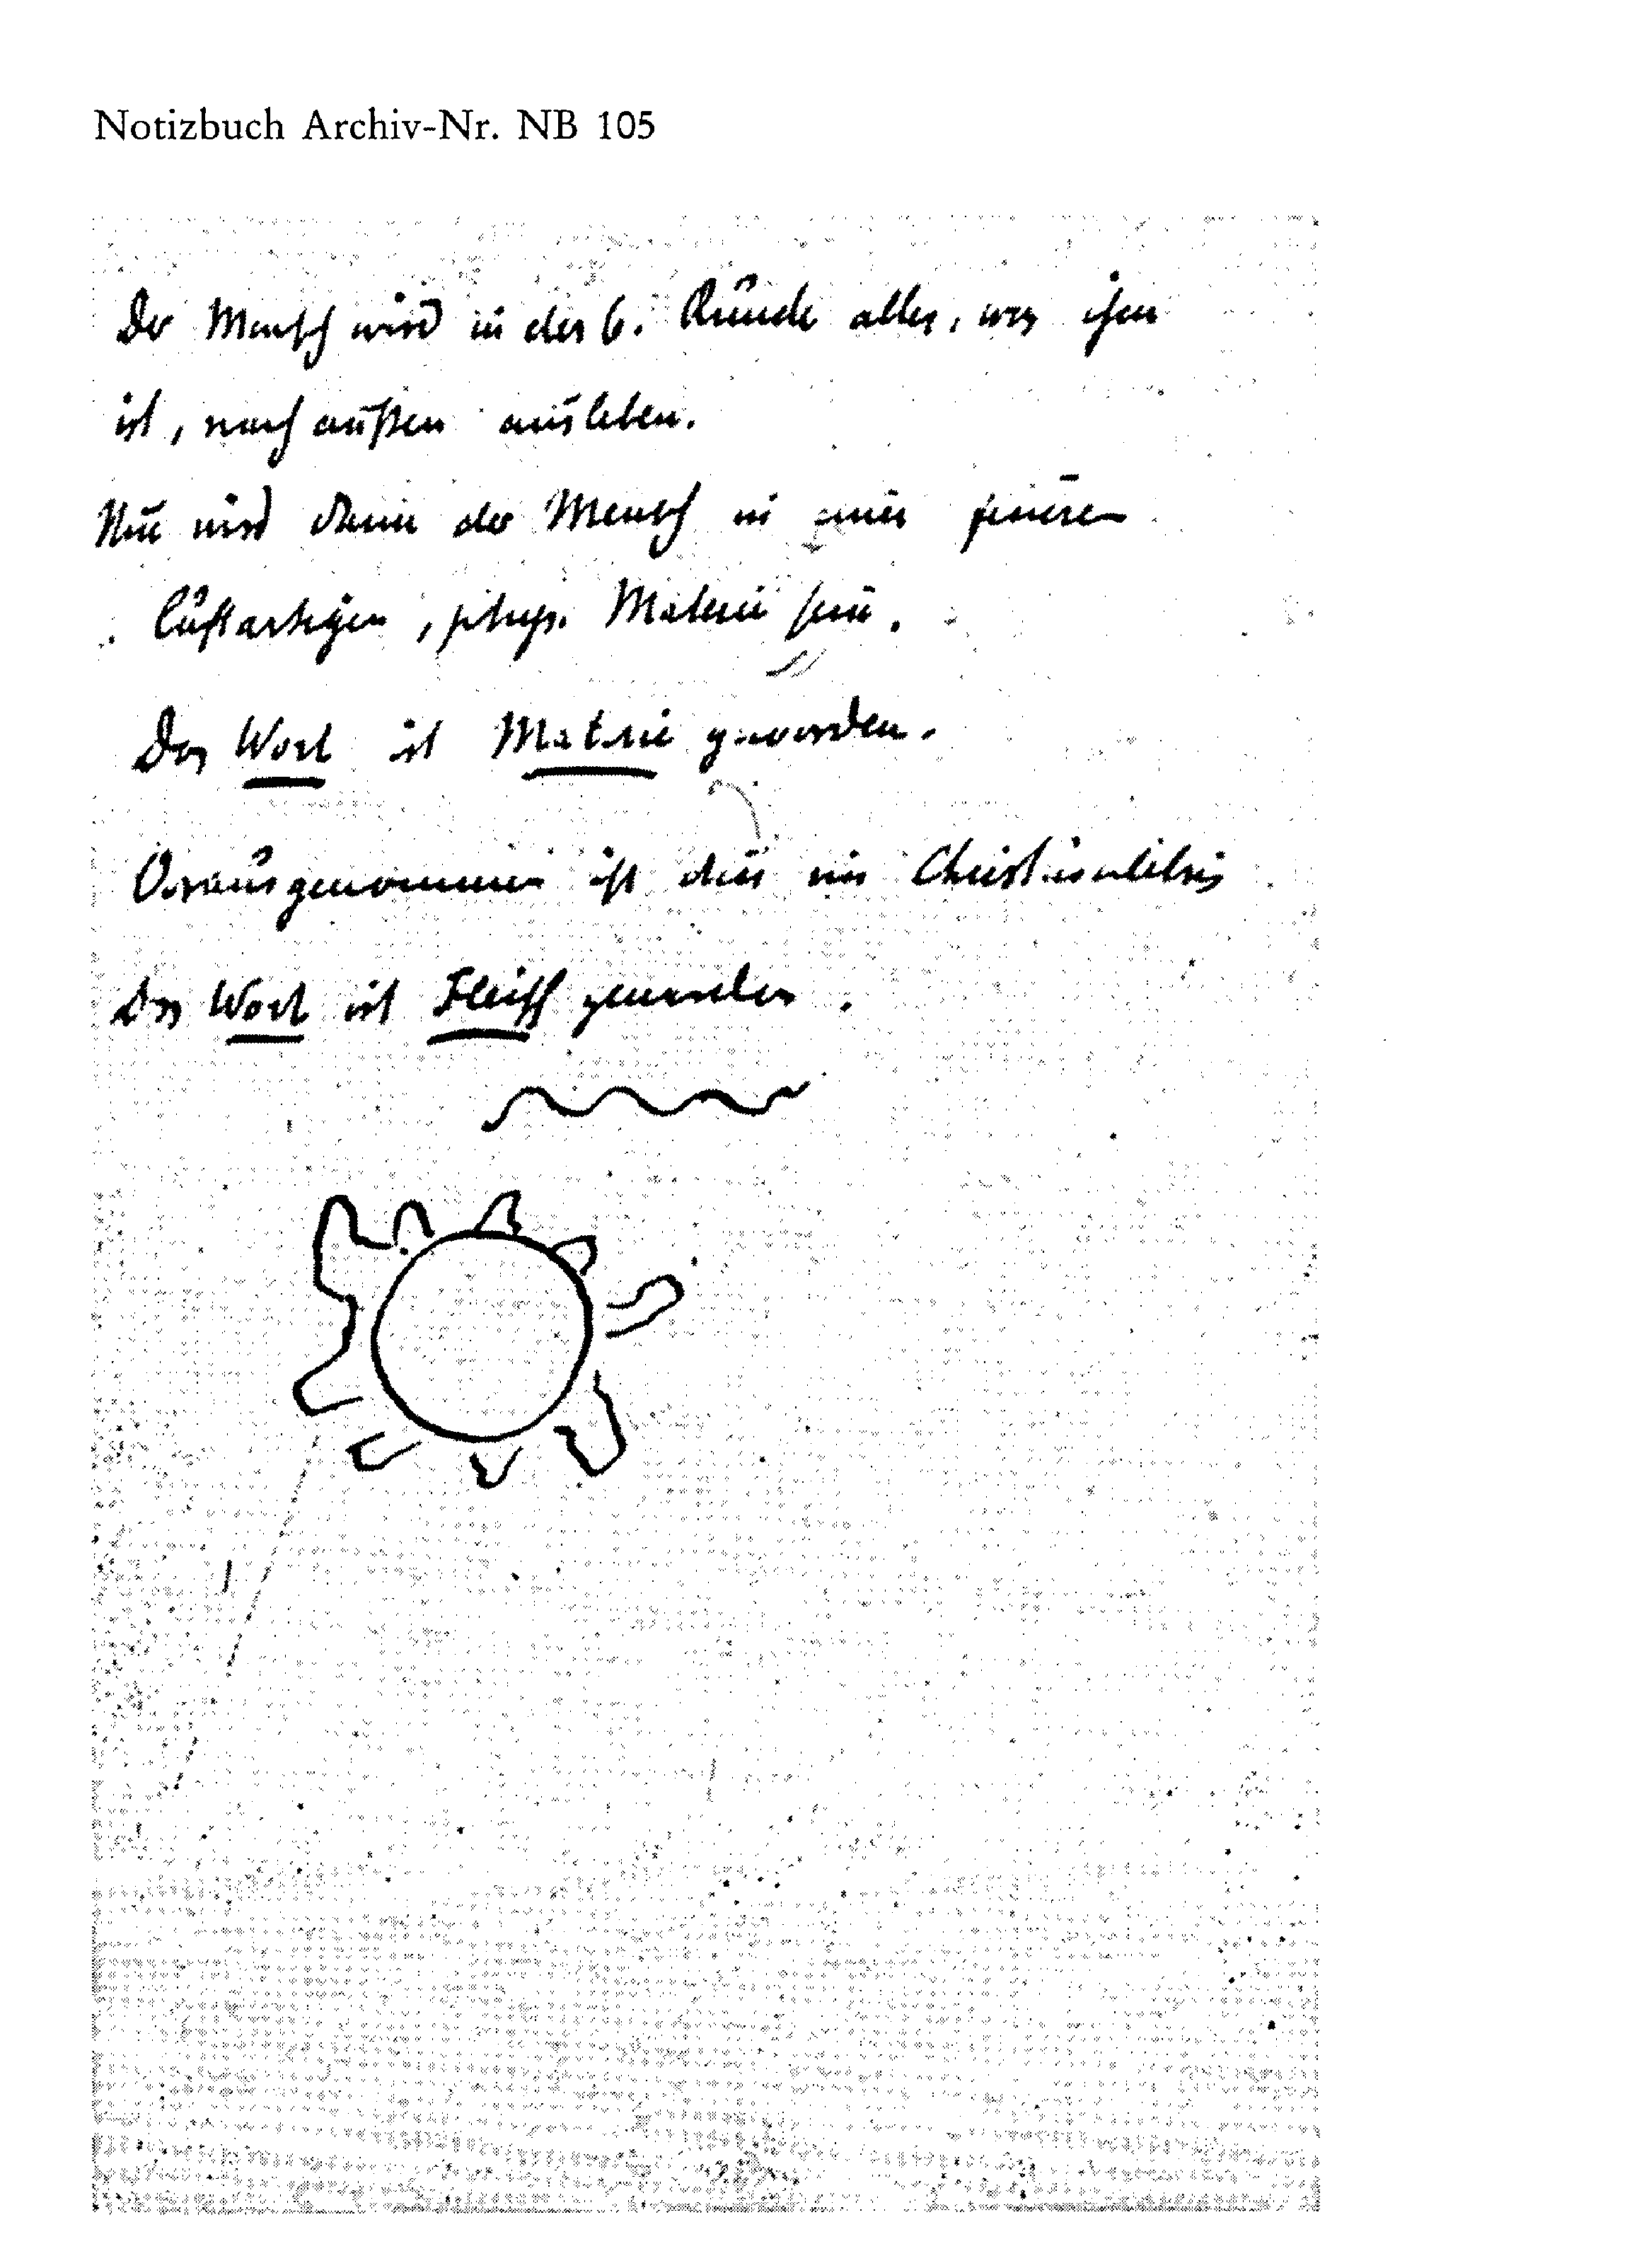 Notizbuch Archiv-Nr. NB 105
Der Mensch wird in der 6. Runde alles, was
ist, nach außen ausleben.
Nun wird dann der Mensch in einer feineren
luftartigen, phys. Materie sein.
Das Wort ist Materie geworden.
Vorausgenommen ist dies im Christuserlebnis
Das Wort ist Fleisch geworden.